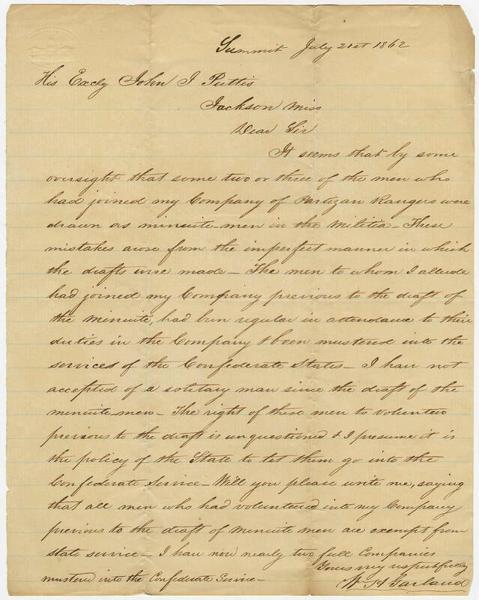 Summit July 21st 1862
His Excly John J Pettis
Jackson Miss
Dear Sir
It seems that by some
oversight that some two or three of the men who
had joined my Company of Partizan Rangers were
drawn as minute men in the Militia - These
mistakes arose from the imperfect manner in which
the drafts were made - The men to whom I allude
had joined my Company previous to the draft of
the Minute, had been regular in attendance to their
duties in the Company & been mustered into the
services of the Confederate States - I have not
accepted of a solitary man since the draft of the
minute men - The right of these men to volunteer
previous to the draft is unquestioned & I presume it is
the policy of the State to let them go into the
Confederate Service - Will you please write me, saying
that all men who had volunteered into my Company
previous to the draft of Minute men are exempt from
state service - I have now nearly two full Companies
Yours very respectfully
mustered into the Confederate Service -
W H Garland